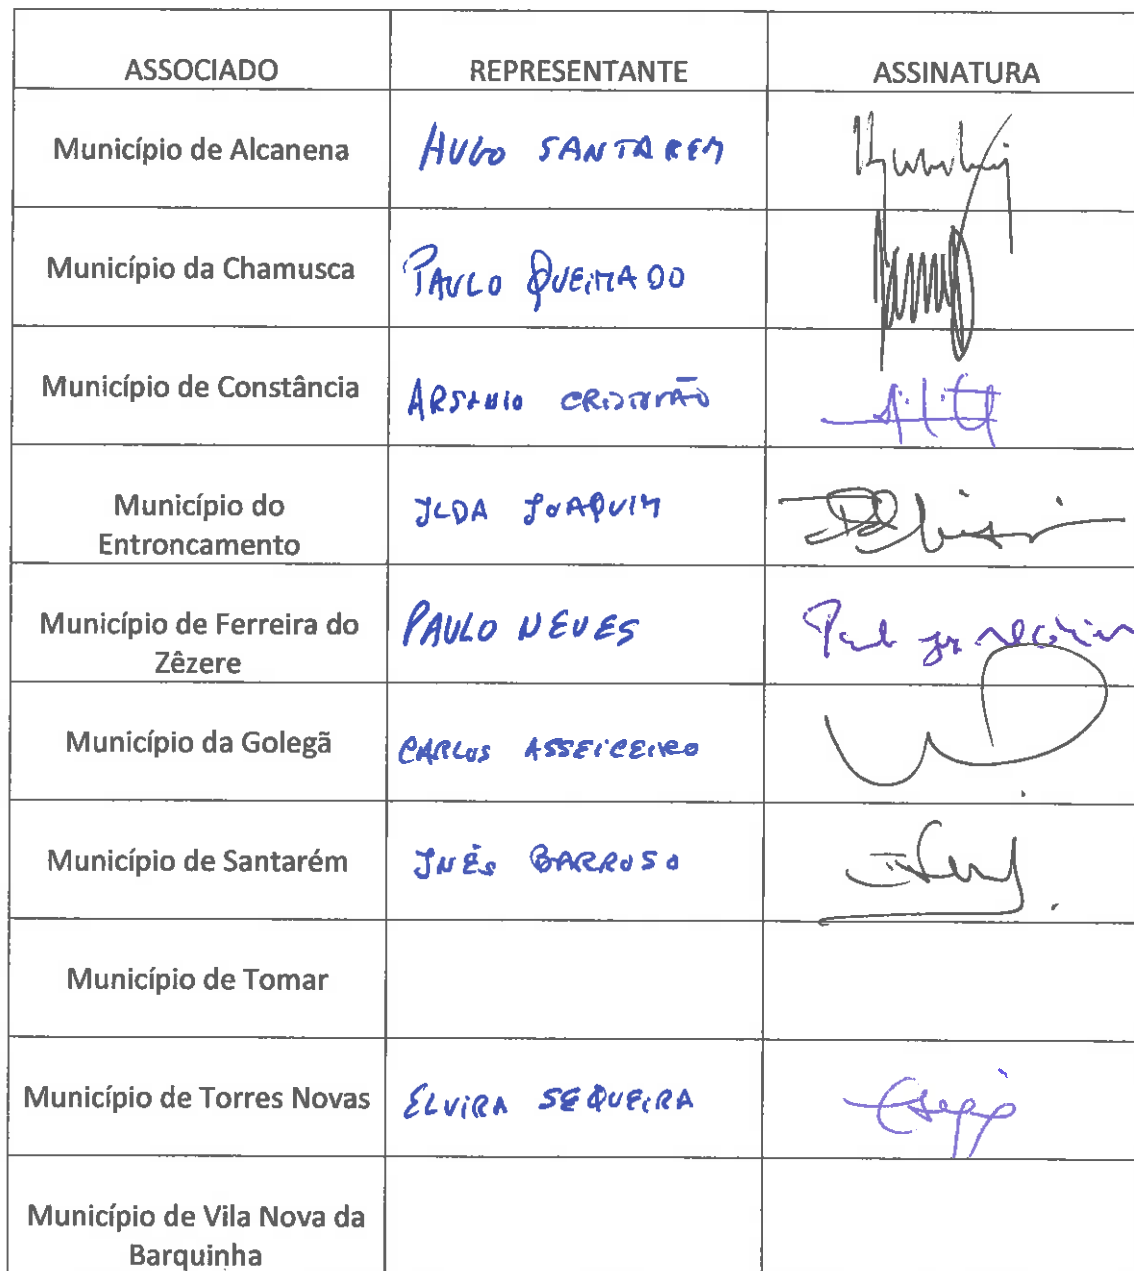 ASSOCIADO REPRESENTANTE ASSINATURA
Município de Alcanena HUGO SANTAREM
Município da Chamusca PAULO QUEIMADO
Município de Constância ARSÉNIO CRISTÓVÃO
Município do
Entroncamento
ILDA JOAQUIM
Município de Ferreira do
Zêzere
PAULO NEVES
Paulo
Município da Golegã CARLOS ASSEICEIRO
Município de Santarém INÊS BARROSO
Município de Tomar
Município de Torres Novas ELVIRA SEQUEIRA
Município de Vila Nova da
Barquinha